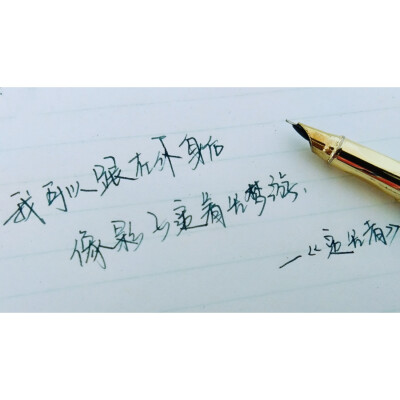 我可以跟在你身后
像影子追着光梦游.
—《追光者》